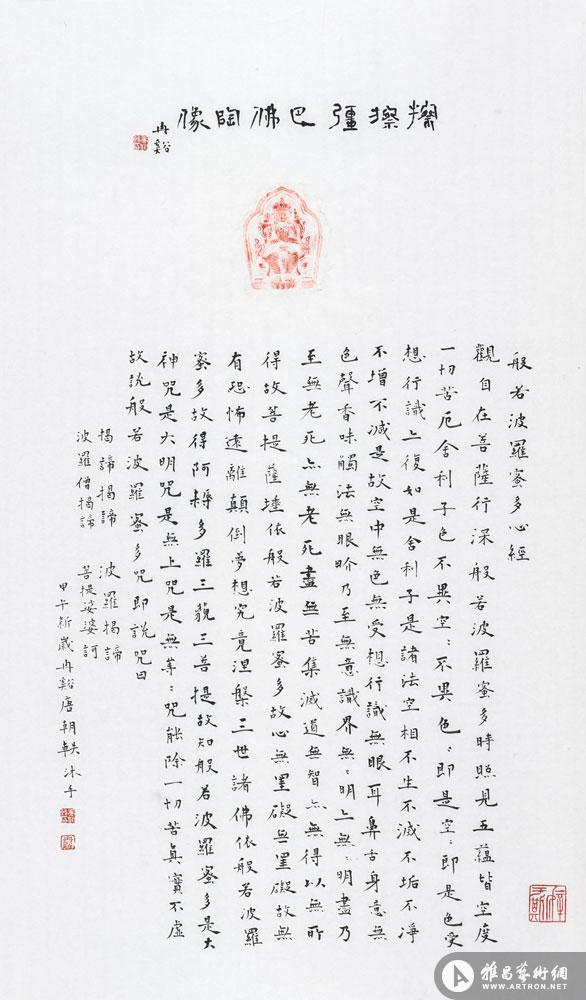 擦彊巴佛陶像
冉谿
般若波羅蜜多心經
觀自在菩薩行深般若波羅蜜多時照見五蘊皆空度
一切苦厄舍利子色不異空:不異色:即是空:即是色受
想行識亦復如是舍利子是諸法空相不生不滅不垢不淨
不增不減是故空中無色無受想行識無眼耳鼻舌身意無
色聲香味觸法無眼界乃至無意識界無:明亦無:明盡乃
至無老死亦無老死盡無苦集滅道無智亦無得以無所
得故菩提薩埵依般若波羅蜜多故心無罣礙無罣礙故無
有恐怖遠離顛倒夢想究竟涅槃三世諸佛依般若波羅
蜜多故得阿耨多羅三藐三菩提故知般若波羅蜜多是大
神咒是大明咒是無上咒是無等:咒能除一切苦真實不虛
故說般若波羅蜜多咒即說咒曰
揭諦揭諦 波羅揭諦
波羅僧揭諦 菩提娑婆訶
甲午新歲冉谿唐朝軼沐手
雅昌藝術網
WWW.ARTRON.NET